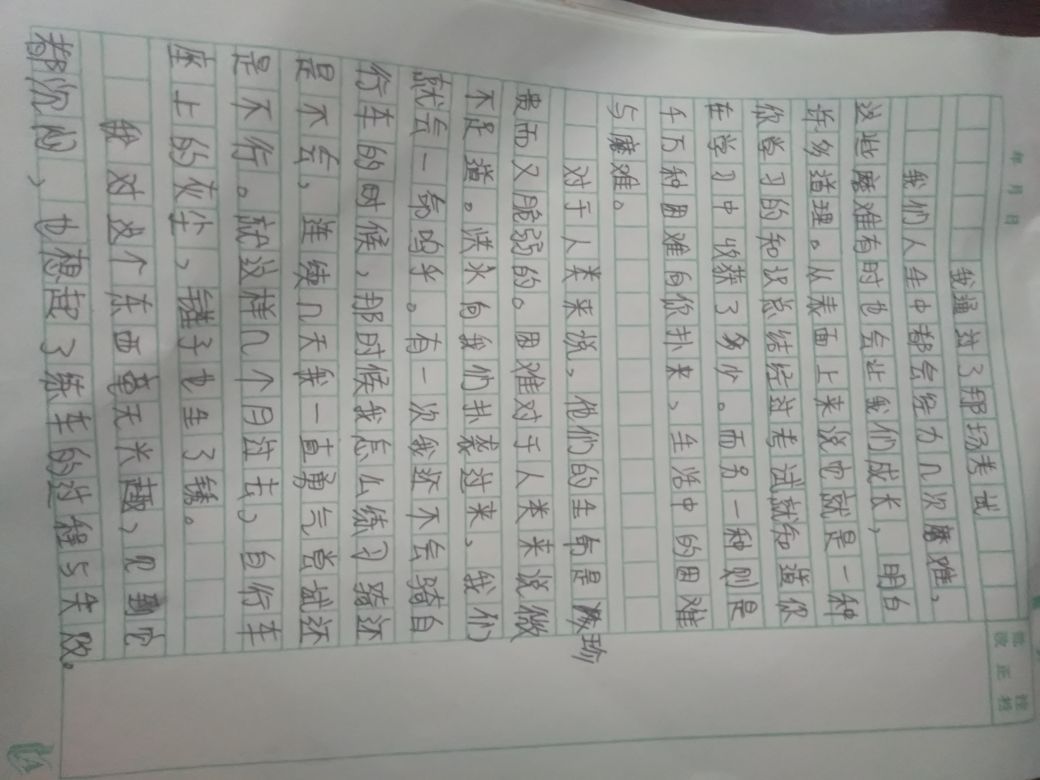 年 月 日
我通过了那场考试
我们人生中都会经力几次磨难，
这些磨难有时也会让我们成长，明白
许多道理。从表面上来说它就是一种
你学习的知识总结经过考试就知道你
在学习中收获了多少。而另一种则是
千万种困难向你扑来，生活中的困难
与磨难。
对于人类来说，他们的生命是珍
贵而又脆弱的。困难对于人类来说微
不足道。洪水向我们扑过来，我们
就会一命呜乎。有一次我还不会骑自
行车的时候，那时候我怎么练习骑还
是不会，连续几天我一直勇气尝试还
是不行。就这样几个月过去，自行车
座上的灰尘，链子也生了锈。
我对这个东西毫无兴趣，见到它
都沉闷，也想起了练车的过程与失败。